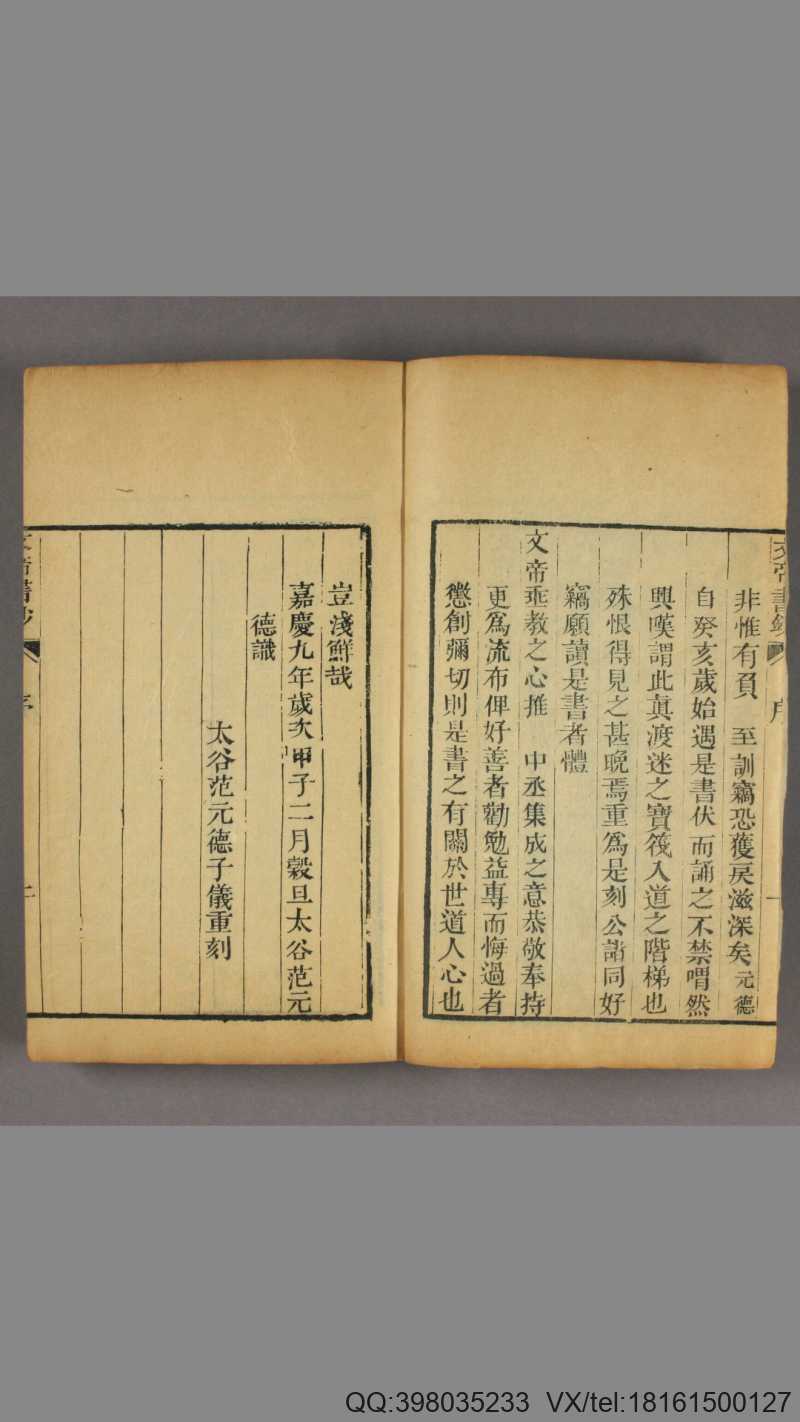 非惟有負　至訓竊恐獲戾滋深矣元德
自癸亥歲始遇是書伏而誦之不禁喟然
興嘆謂此眞渡迷之寶筏入道之階梯也
殊恨得見之甚晚焉重爲是刻公諸同好
竊願讀是書者體
文帝垂教之心推　中丞集成之意恭敬奉持
更爲流布俾好善者勸勉益專而悔過者
懲創彌切則是書之有關於世道人心也
豈淺鮮哉
嘉慶九年歲次甲子二月穀旦太谷范元
德識
太谷范元德子儀重刻
QQ:398035233 VX/tel:18161500127